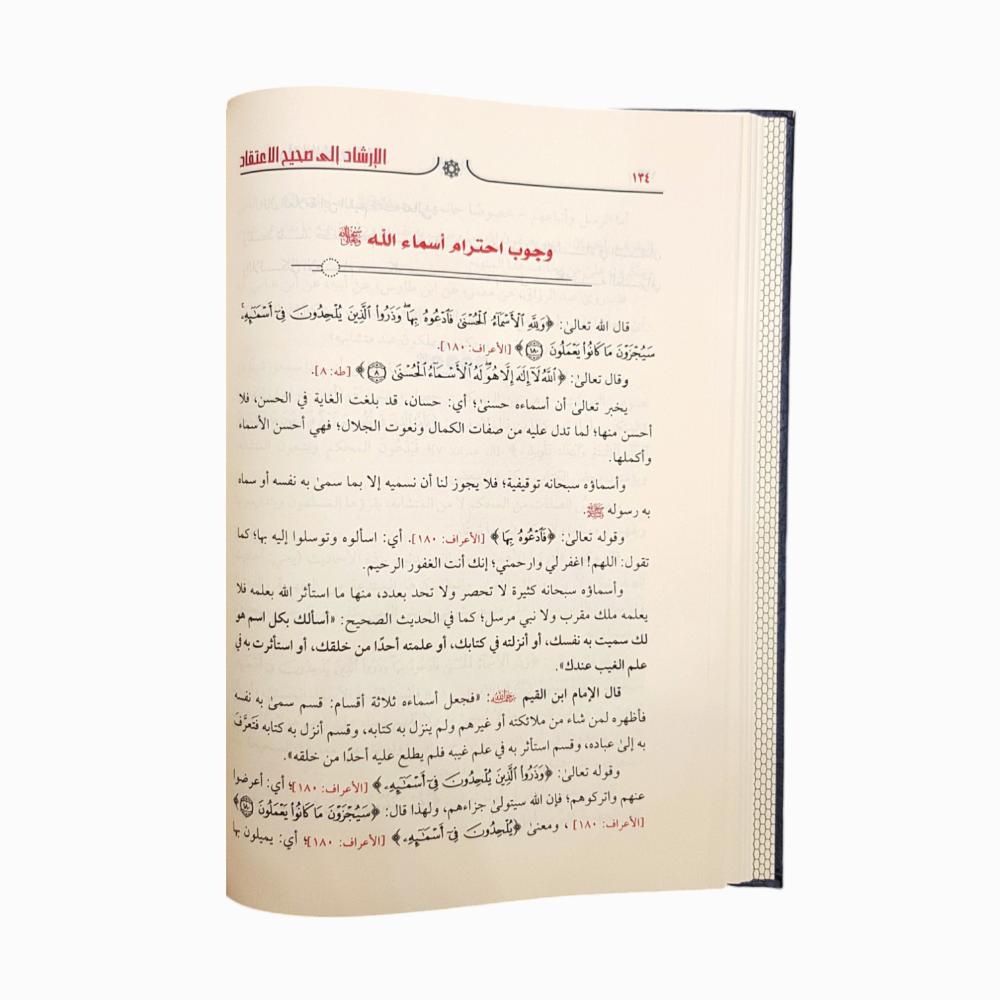 الإرشاد إلى صحيح الاعتقاد
١٣٤
وجوب احترام أسماء الله ﷾
قال الله تعالىٰ: ﴿وَلِلَّهِ ٱلْأَسْمَآءُ ٱلْحُسْنَىٰ فَٱدْعُوهُ بِهَا ۖ وَذَرُوا۟ ٱلَّذِينَ يُلْحِدُونَ فِىٓ أَسْمَـٰٓئِهِۦ ۚ
سَيُجْزَوْنَ مَا كَانُوا۟ يَعْمَلُونَ ١٨٠﴾ [الأعراف: ١٨٠].
وقال تعالىٰ: ﴿ٱللَّهُ لَآ إِلَـٰهَ إِلَّا هُوَ ۖ لَهُ ٱلْأَسْمَآءُ ٱلْحُسْنَىٰ ٨﴾ [طه: ٨].
يخبر تعالىٰ أن أسماءه حسنىٰ؛ أي: حسان، قد بلغت الغاية في الحسن، فلا
أحسن منها؛ لما تدل عليه من صفات الكمال ونعوت الجلال؛ فهي أحسن الأسماء
وأكملها.
وأسماؤه سبحانه توقيفية؛ فلا يجوز لنا أن نسميه إلا بما سمىٰ به نفسه أو سماه
به رسوله ﷺ.
وقوله تعالىٰ: ﴿فَٱدْعُوهُ بِهَا﴾ [الأعراف: ١٨٠]. أي: اسألوه وتوسلوا إليه بها؛ كما
تقول: اللهم! اغفر لي وارحمني؛ إنك أنت الغفور الرحيم.
وأسماؤه سبحانه كثيرة لا تحصر ولا تحد بعدد، منها ما استأثر الله بعلمه فلا
يعلمه ملك مقرب ولا نبي مرسل؛ كما في الحديث الصحيح: «أسألك بكل اسم هو
لك سميت به نفسك، أو أنزلته في كتابك، أو علمته أحدًا من خلقك، أو استأثرت به في
علم الغيب عندك».
قال الإمام ابن القيم رحمه الله: «فجعل أسماءه ثلاثة أقسام: قسم سمىٰ به نفسه
فأظهره لمن شاء من ملائكته أو غيرهم ولم ينزل به كتابه، وقسم أنزل به كتابه فَتَعرَّفَ
به إلىٰ عباده، وقسم استأثر به في علم غيبه فلم يطلع عليه أحدًا من خلقه».
وقوله تعالىٰ: ﴿وَذَرُوا۟ ٱلَّذِينَ يُلْحِدُونَ فِىٓ أَسْمَـٰٓئِهِۦ﴾ [الأعراف: ١٨٠]؛ أي: أعرضوا
عنهم واتركوهم؛ فإن الله سيتولىٰ جزاءهم، ولهذا قال: ﴿سَيُجْزَوْنَ مَا كَانُوا۟ يَعْمَلُونَ ١٨٠﴾
[الأعراف: ١٨٠]، ومعنىٰ ﴿يُلْحِدُونَ فِىٓ أَسْمَـٰٓئِهِۦ﴾ [الأعراف: ١٨٠]؛ أي: يميلون بها